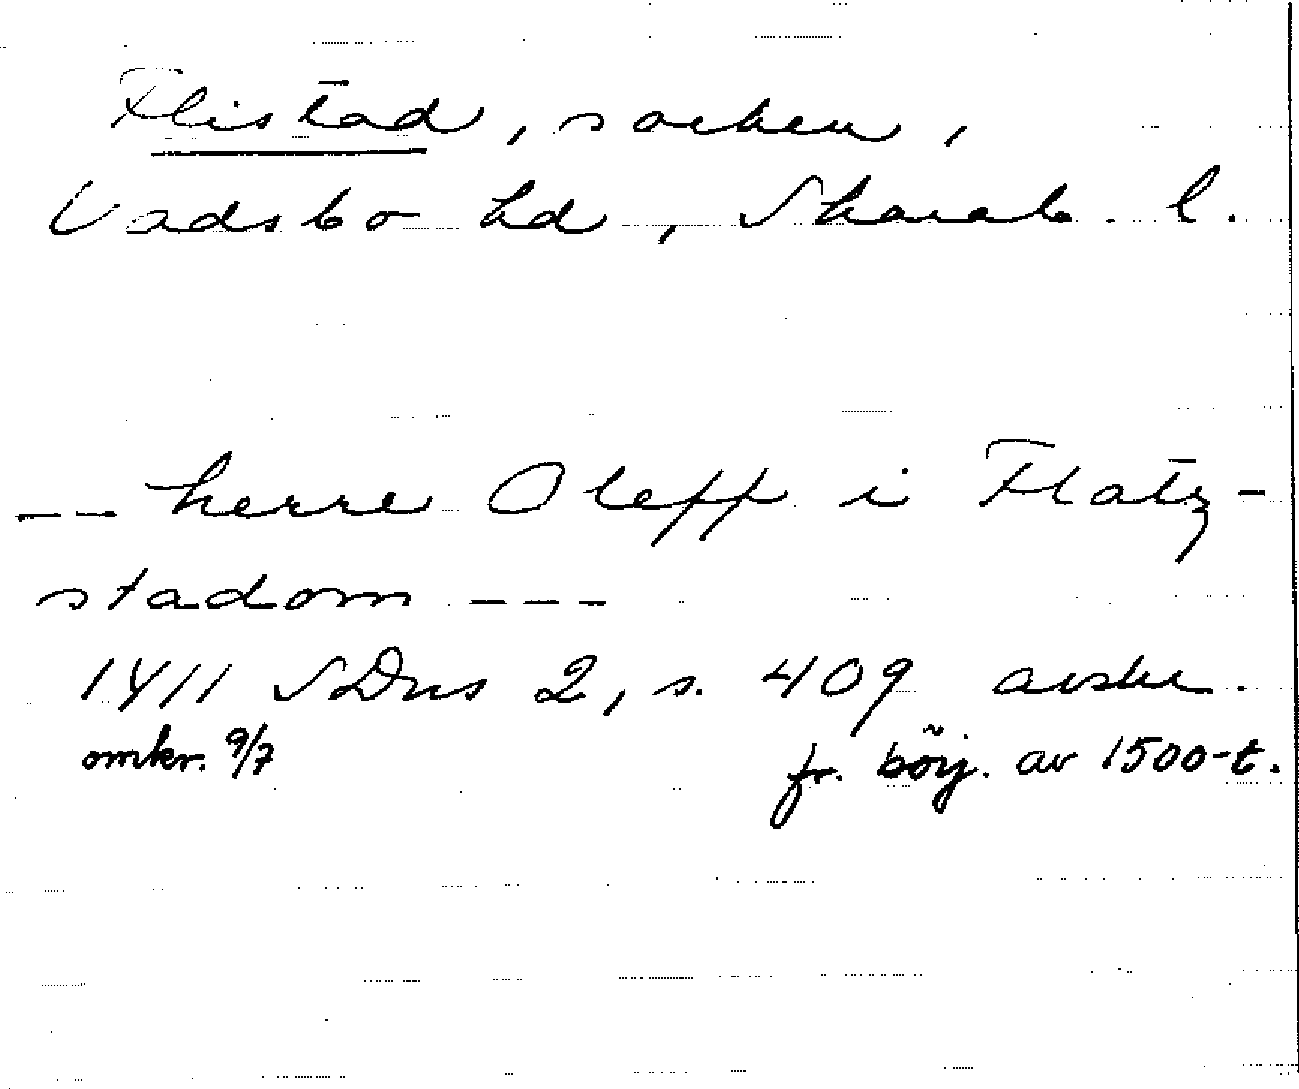 Flistad, socken,
Vadsbo hd, Skarab. l.
-- herre Oleff i Flatz-
stadom ---
1411 SDns 2, s. 409 avskr.
omkr. 9/7 fr. börj. av 1500-t.